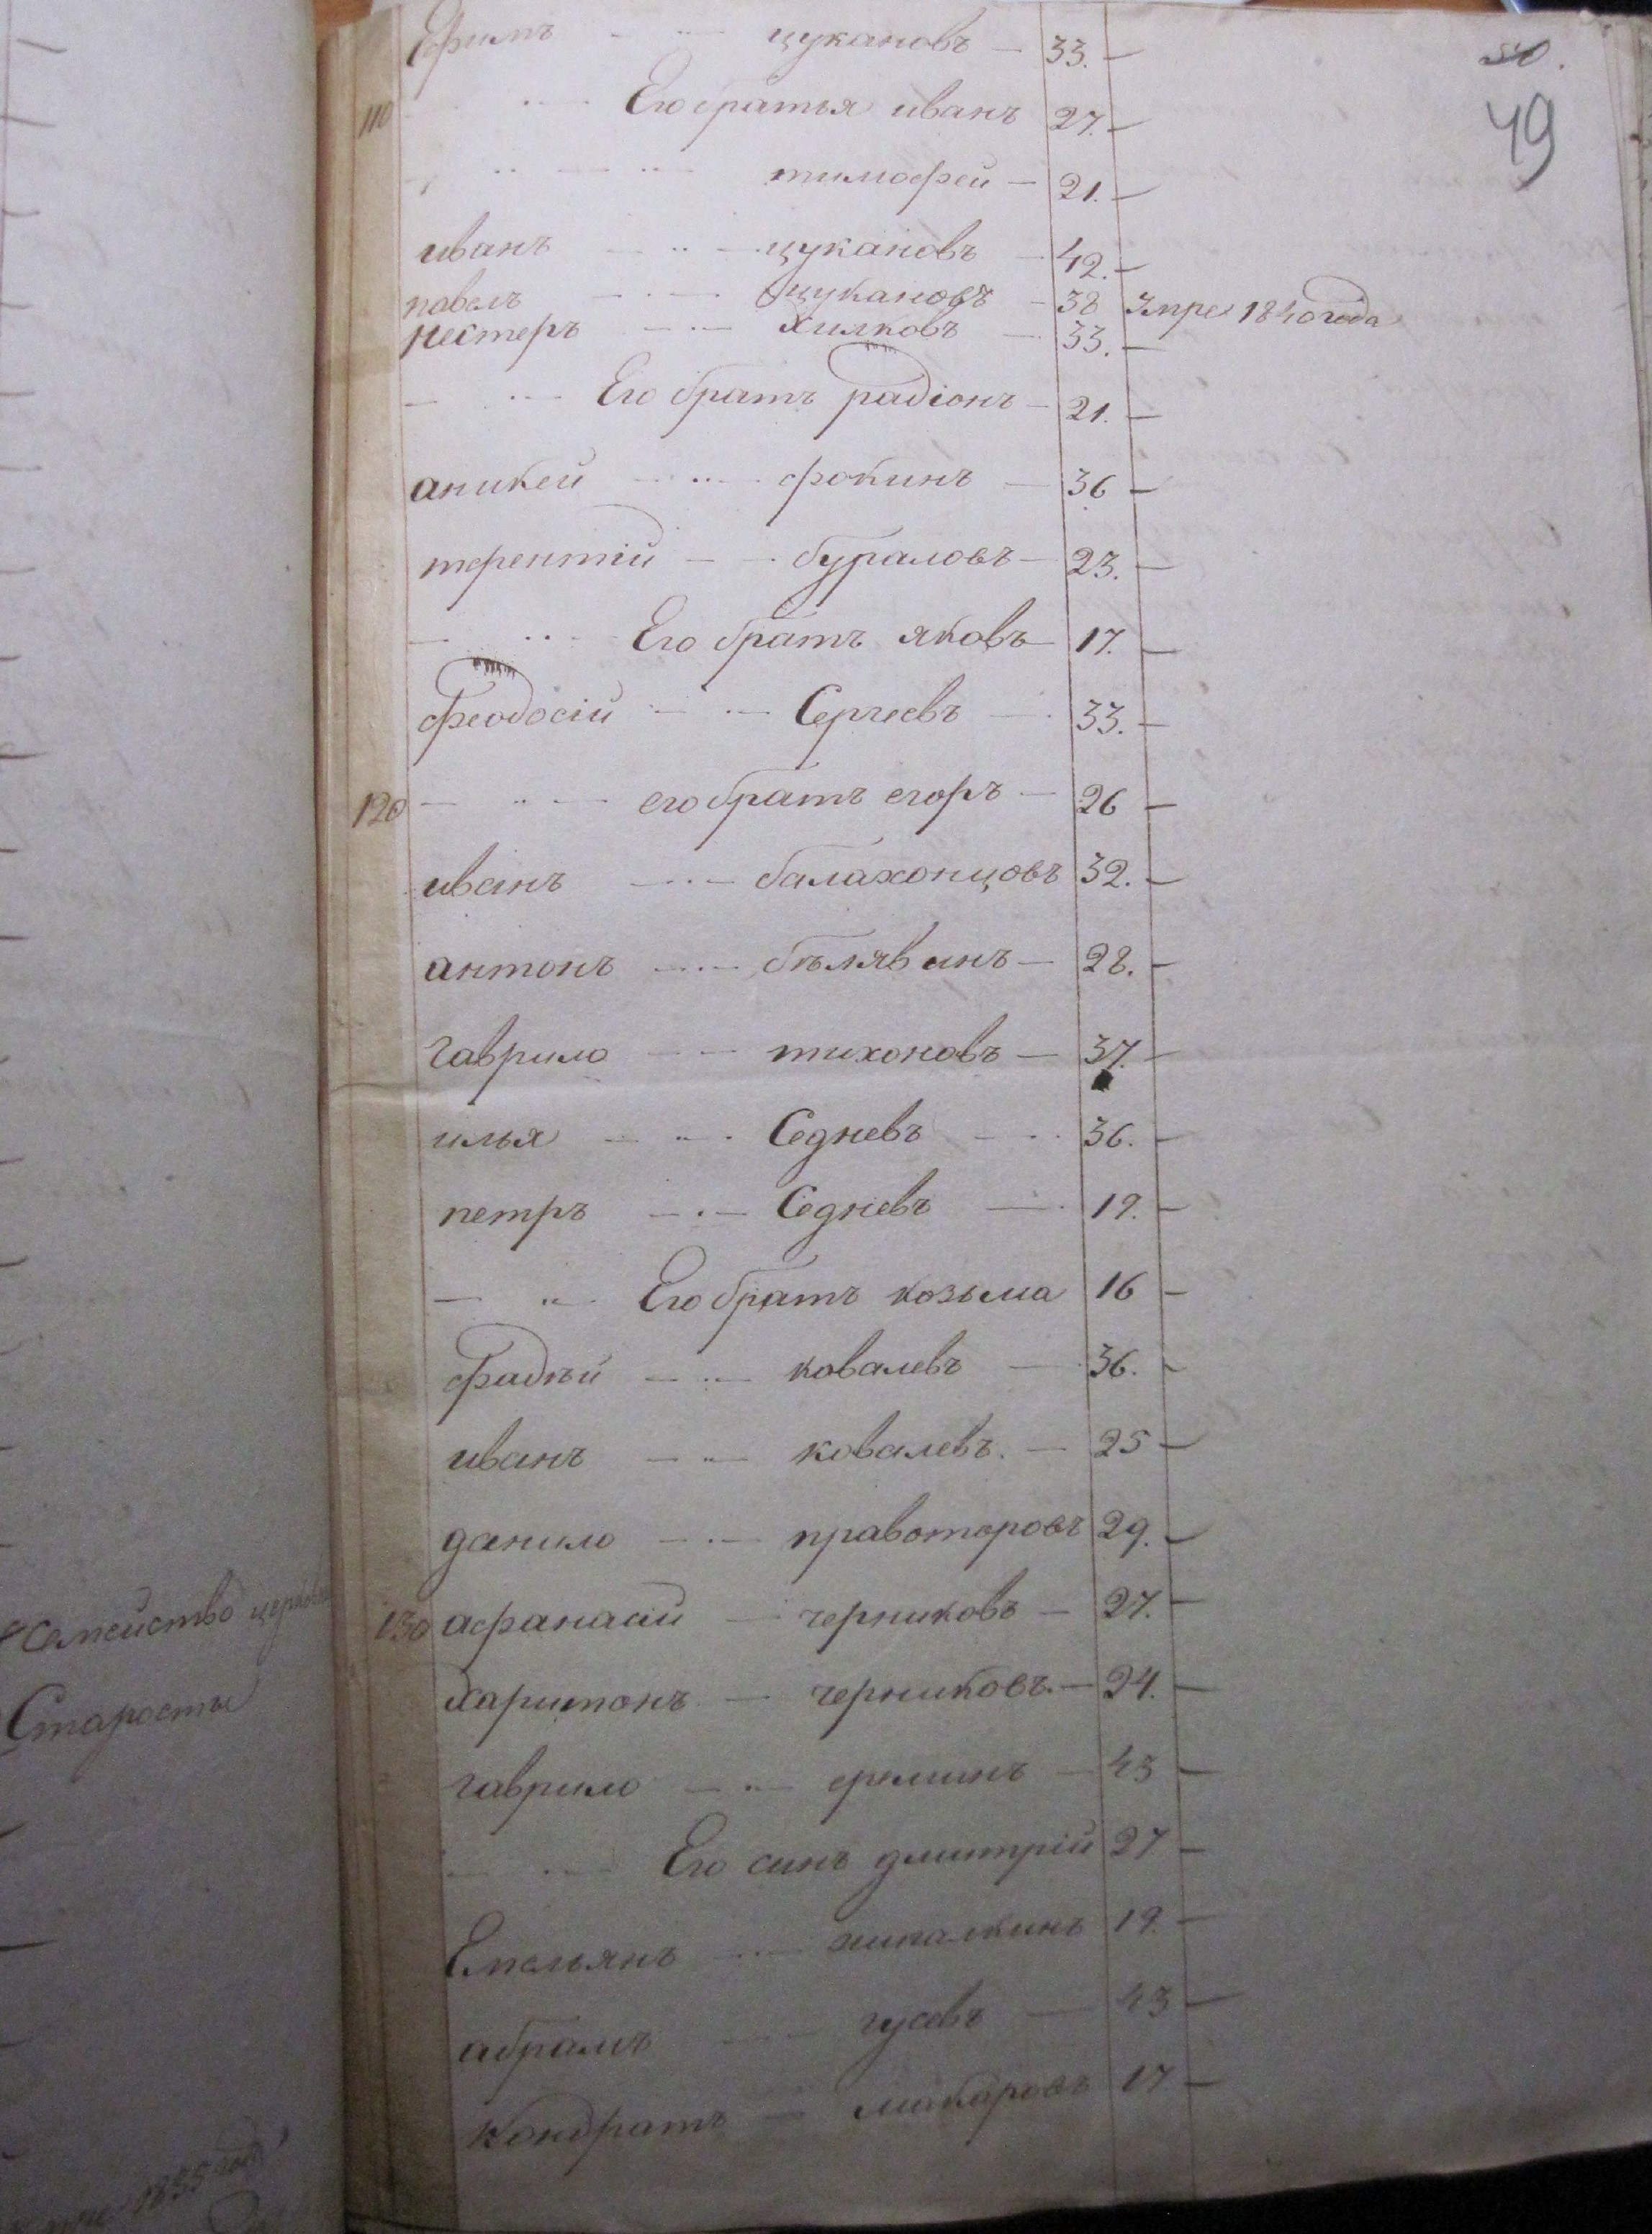 50.
49
Ефимъ — цукановъ — 33. —
110 Его братья иванъ 27. —
тимофей — 21. —
иванъ — цукановъ — 42. —
павелъ — цукановъ — 38 Умре 1840 года
нестеръ — хилковъ — 33. —
Его братъ радіонъ — 21. —
аникей — фокинъ — 36 —
терентій — бураловъ — 23. —
Его братъ яковъ — 17. —
феодосій — Сергеевъ — 33. —
120 его братъ егоръ — 26 —
иванъ — балахонцовъ 32. —
антонъ — бѣлявинъ — 28. —
гаврило — тихоновъ — 37. —
илья — Седневъ — 36. —
петръ — Седневъ — 19. —
Его братъ козьма 16 —
фадѣй — ковалевъ — 36. —
иванъ — ковалевъ. — 25 —
данило — правоторовъ 29. —
130 афанасій — черниковъ — 27. —
харитонъ — черниковъ. — 24. —
гаврило — ереминъ — 43 —
Его синъ дмитрій 27 —
Емельянъ — 19. —
абрамъ — гусевъ — 43 —
Кондратъ — макаровъ 17 —
Семейство
Старосты
1835 года